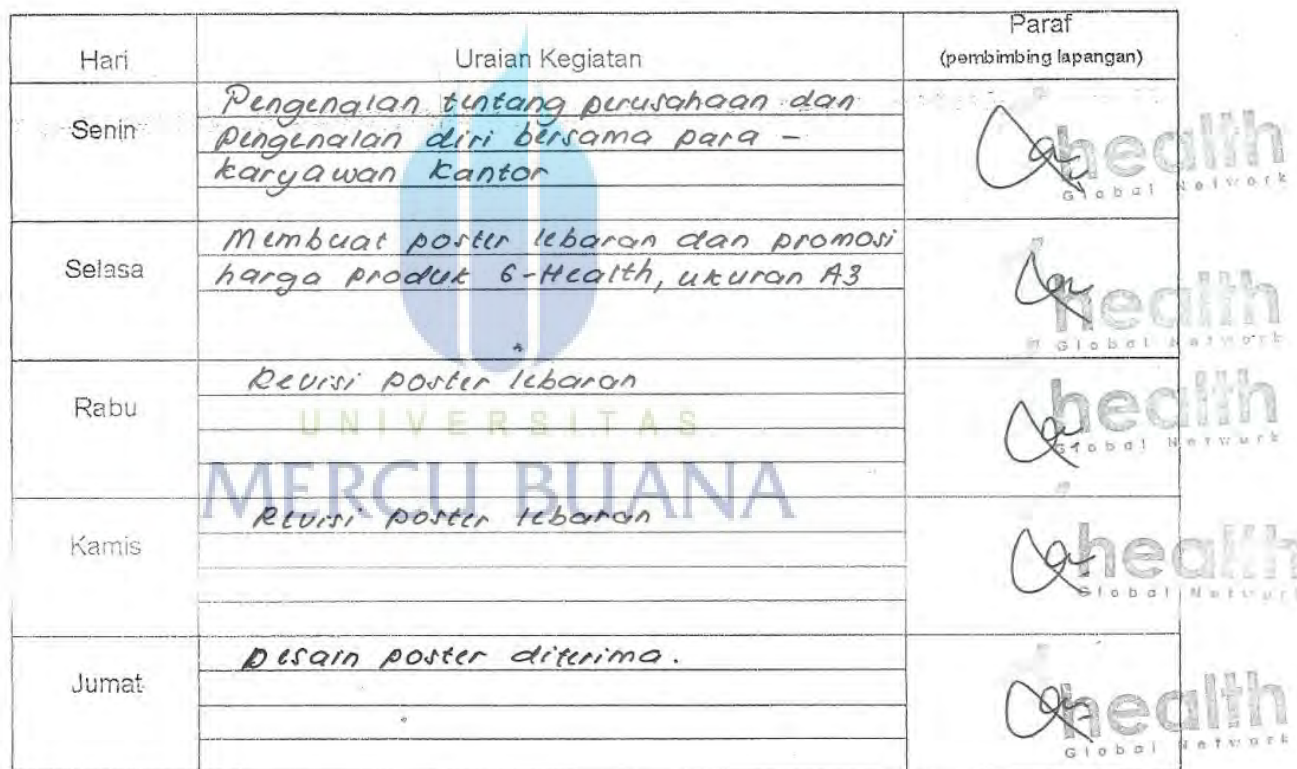 Hari
Uraian Kegiatan
Paraf
(pembimbing lapangan)
Senin
Pengenalan tentang perusahaan dan
pengenalan diri bersama para -
karyawan kantor
health
Global Network
Selasa
Membuat poster lebaran dan promosi
harga produk G-Health, ukuran A3
health
Global Network
Rabu
Revisi poster lebaran
health
Global Network
UNIVERSITAS
MERCU BUANA
Kamis
Revisi poster lebaran
health
Global Network
Jumat
Desain poster diterima.
health
Global Network